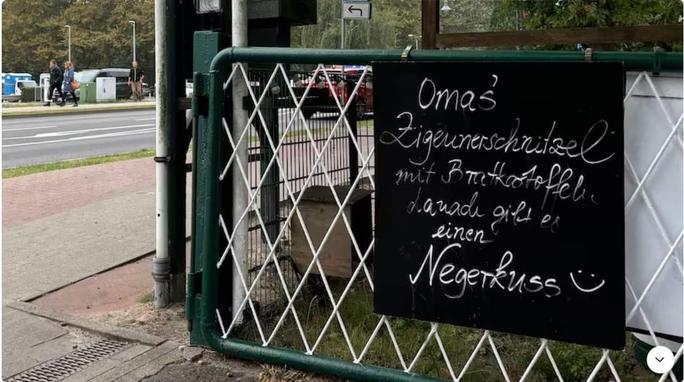 Omas'
Zigeunerschnitzel
mit Bratkartoffeln
danach gibt es
einen
Negerkuss